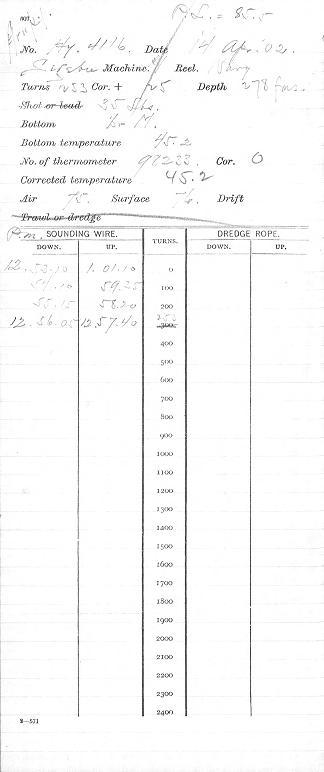 P.L. = 35.5
No. Hy. 4116 Date 14 Apr. 02.
Sigsbee Machine. Reel. Navy
Turns 253 Cor. + 25 Depth 278 fms.
Shot or lead 35 lbs.
Bottom M.
Bottom temperature 45.2
No. of thermometer 92233. Cor. 0
Corrected temperature 45.2
Air 75. Surface 76. Drift
Trawl or dredge
P.m. SOUNDING WIRE. TURNS. DREDGE ROPE.
DOWN. UP. DOWN. UP.
12.53.10 1.01.10 0
54.10 59.25 100
55.15 58.20 200
12.56.05 12.57.40 253 300
400
500
600
700
800
900
1000
1100
1200
1300
1400
1500
1600
1700
1800
1900
2000
2100
2200
2300
2400
2—571